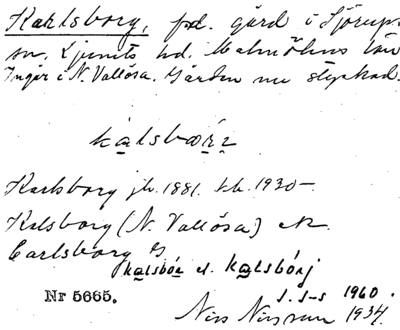 Karlsborg, fd. gård i Sjörups
sn. Ljunits hd. Malmöhus län
Ingår i N. Vallösa. Gården nu styckad.
Karlsborg jb. 1881. tb. 1930-
Kalsborg (N. Vallösa) ek
Carlsborg
Nr 5665.
1960.
Nils Nilsson 1934.